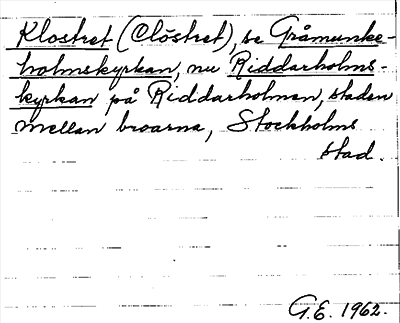 Klostret (Clöstret), se Gråmunke-
holmskyrkan, nu Riddarholms-
kyrkan på Riddarholmen, staden
mellan broarna, Stockholms
stad.
G.E. 1962.